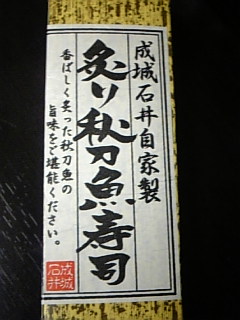 成城石井自家製
炙り秋刀魚寿司
香ばしく炙った秋刀魚の
旨味をご堪能ください。
成城
石井